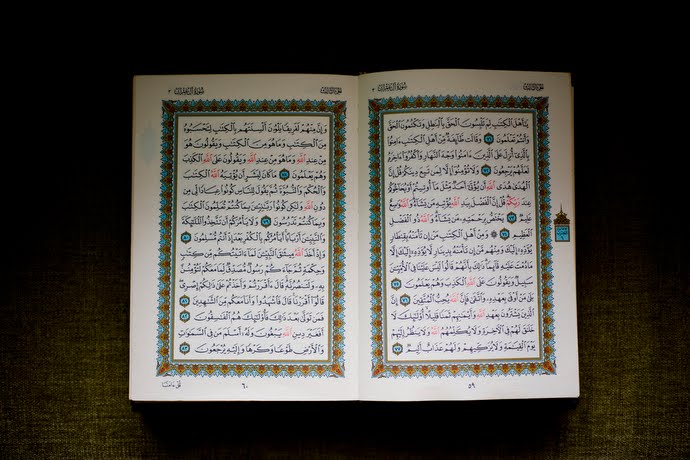 سُورَةُ آلِ عِمْرَان ٣
الجُزْءُ الثَّالِثُ
يَٰٓأَهْلَ ٱلْكِتَٰبِ لِمَ تَلْبِسُونَ ٱلْحَقَّ بِٱلْبَٰطِلِ وَتَكْتُمُونَ ٱلْحَقَّ
وَأَنتُمْ تَعْلَمُونَ ٧١ وَقَالَت طَّآئِفَةٌ مِّنْ أَهْلِ ٱلْكِتَٰبِ ءَامِنُوا۟
بِٱلَّذِىٓ أُنزِلَ عَلَى ٱلَّذِينَ ءَامَنُوا۟ وَجْهَ ٱلنَّهَارِ وَٱكْفُرُوٓا۟ ءَاخِرَهُۥ
لَعَلَّهُمْ يَرْجِعُونَ ٧٢ وَلَا تُؤْمِنُوٓا۟ إِلَّا لِمَن تَبِعَ دِينَكُمْ قُلْ إِنَّ
ٱلْهُدَىٰ هُدَى ٱللَّهِ أَن يُؤْتَىٰٓ أَحَدٌ مِّثْلَ مَآ أُوتِيتُمْ أَوْ يُحَآجُّوكُمْ
عِندَ رَبِّكُمْ قُلْ إِنَّ ٱلْفَضْلَ بِيَدِ ٱللَّهِ يُؤْتِيهِ مَن يَشَآءُ وَٱللَّهُ وَٰسِعٌ
عَلِيمٌ ٧٣ يَخْتَصُّ بِرَحْمَتِهِۦ مَن يَشَآءُ وَٱللَّهُ ذُو ٱلْفَضْلِ
ٱلْعَظِيمِ ٧٤ ۞ وَمِنْ أَهْلِ ٱلْكِتَٰبِ مَنْ إِن تَأْمَنْهُ بِقِنطَارٍ
يُؤَدِّهِۦٓ إِلَيْكَ وَمِنْهُم مَّنْ إِن تَأْمَنْهُ بِدِينَارٍ لَّا يُؤَدِّهِۦٓ إِلَيْكَ إِلَّا
مَا دُمْتَ عَلَيْهِ قَآئِمًا ذَٰلِكَ بِأَنَّهُمْ قَالُوا۟ لَيْسَ عَلَيْنَا فِى ٱلْأُمِّيِّـۧنَ
سَبِيلٌ وَيَقُولُونَ عَلَى ٱللَّهِ ٱلْكَذِبَ وَهُمْ يَعْلَمُونَ ٧٥
بَلَىٰ مَنْ أَوْفَىٰ بِعَهْدِهِۦ وَٱتَّقَىٰ فَإِنَّ ٱللَّهَ يُحِبُّ ٱلْمُتَّقِينَ ٧٦ إِنَّ
ٱلَّذِينَ يَشْتَرُونَ بِعَهْدِ ٱللَّهِ وَأَيْمَٰنِهِمْ ثَمَنًا قَلِيلًا أُو۟لَٰٓئِكَ لَا
خَلَٰقَ لَهُمْ فِى ٱلْءَاخِرَةِ وَلَا يُكَلِّمُهُمُ ٱللَّهُ وَلَا يَنظُرُ إِلَيْهِمْ
يَوْمَ ٱلْقِيَٰمَةِ وَلَا يُزَكِّيهِمْ وَلَهُمْ عَذَابٌ أَلِيمٌ ٧٧
٥٩
الجُزْءُ الثَّالِثُ
سُورَةُ آلِ عِمْرَان ٣
وَإِنَّ مِنْهُمْ لَفَرِيقًا يَلْوُۥنَ أَلْسِنَتَهُم بِٱلْكِتَٰبِ لِتَحْسَبُوهُ
مِنَ ٱلْكِتَٰبِ وَمَا هُوَ مِنَ ٱلْكِتَٰبِ وَيَقُولُونَ هُوَ
مِنْ عِندِ ٱللَّهِ وَمَا هُوَ مِنْ عِندِ ٱللَّهِ وَيَقُولُونَ عَلَى ٱللَّهِ ٱلْكَذِبَ
وَهُمْ يَعْلَمُونَ ٧٨ مَا كَانَ لِبَشَرٍ أَن يُؤْتِيَهُ ٱللَّهُ ٱلْكِتَٰبَ
وَٱلْحُكْمَ وَٱلنُّبُوَّةَ ثُمَّ يَقُولَ لِلنَّاسِ كُونُوا۟ عِبَادًا لِّى مِن
دُونِ ٱللَّهِ وَلَٰكِن كُونُوا۟ رَبَّٰنِيِّـۧنَ بِمَا كُنتُمْ تُعَلِّمُونَ ٱلْكِتَٰبَ
وَبِمَا كُنتُمْ تَدْرُسُونَ ٧٩ وَلَا يَأْمُرَكُمْ أَن تَتَّخِذُوا۟ ٱلْمَلَٰٓئِكَةَ
وَٱلنَّبِيِّـۧنَ أَرْبَابًا أَيَأْمُرُكُم بِٱلْكُفْرِ بَعْدَ إِذْ أَنتُم مُّسْلِمُونَ ٨٠
وَإِذْ أَخَذَ ٱللَّهُ مِيثَٰقَ ٱلنَّبِيِّـۧنَ لَمَآ ءَاتَيْتُكُم مِّن كِتَٰبٍ
وَحِكْمَةٍ ثُمَّ جَآءَكُمْ رَسُولٌ مُّصَدِّقٌ لِّمَا مَعَكُمْ لَتُؤْمِنُنَّ
بِهِۦ وَلَتَنصُرُنَّهُۥ قَالَ ءَأَقْرَرْتُمْ وَأَخَذْتُمْ عَلَىٰ ذَٰلِكُمْ إِصْرِى
قَالُوٓا۟ أَقْرَرْنَا قَالَ فَٱشْهَدُوا۟ وَأَنَا۠ مَعَكُم مِّنَ ٱلشَّٰهِدِينَ ٨١
فَمَن تَوَلَّىٰ بَعْدَ ذَٰلِكَ فَأُو۟لَٰٓئِكَ هُمُ ٱلْفَٰسِقُونَ ٨٢
أَفَغَيْرَ دِينِ ٱللَّهِ يَبْغُونَ وَلَهُۥٓ أَسْلَمَ مَن فِى ٱلسَّمَٰوَٰتِ
وَٱلْأَرْضِ طَوْعًا وَكَرْهًا وَإِلَيْهِ يُرْجَعُونَ ٨٣
٦٠
قُلْ ءَامَنَّا